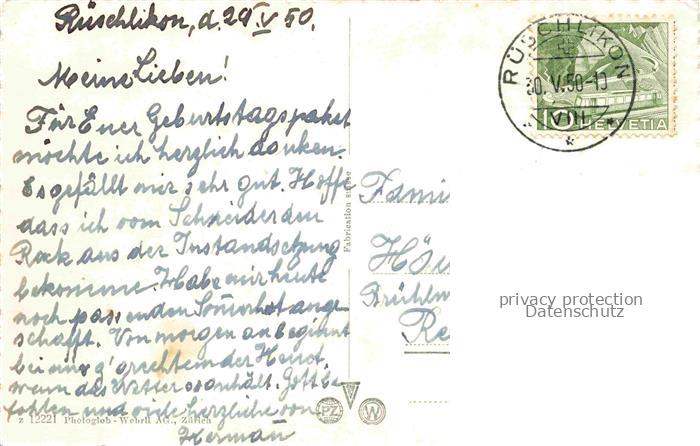 Rüschlikon, d. 29. V 50.
Meine Lieben!
Für Euer Geburtstagspaket
möchte ich herzlich danken.
Es gefällt mir sehr gut. Hoffe
dass ich vom Schneider den
Rock aus der Instandsetzung
bekomme. Habe mir heute
noch passenden Sommerhot ange-
schafft. Von morgen an beginnt
bei uns g'rechtem der Heuet,
wenn das Wetter so anhält. Gott be
fohlen und viele herzliche von
Herman
z 12221 Photoglob-Wehrli AG., Zürich
Fabrication suisse
PZ W
RÜSCHLIKON
30. V. 50-19
VIII
10 HELVETIA
Fami
Brühlw
Re
privacy protection
Datenschutz